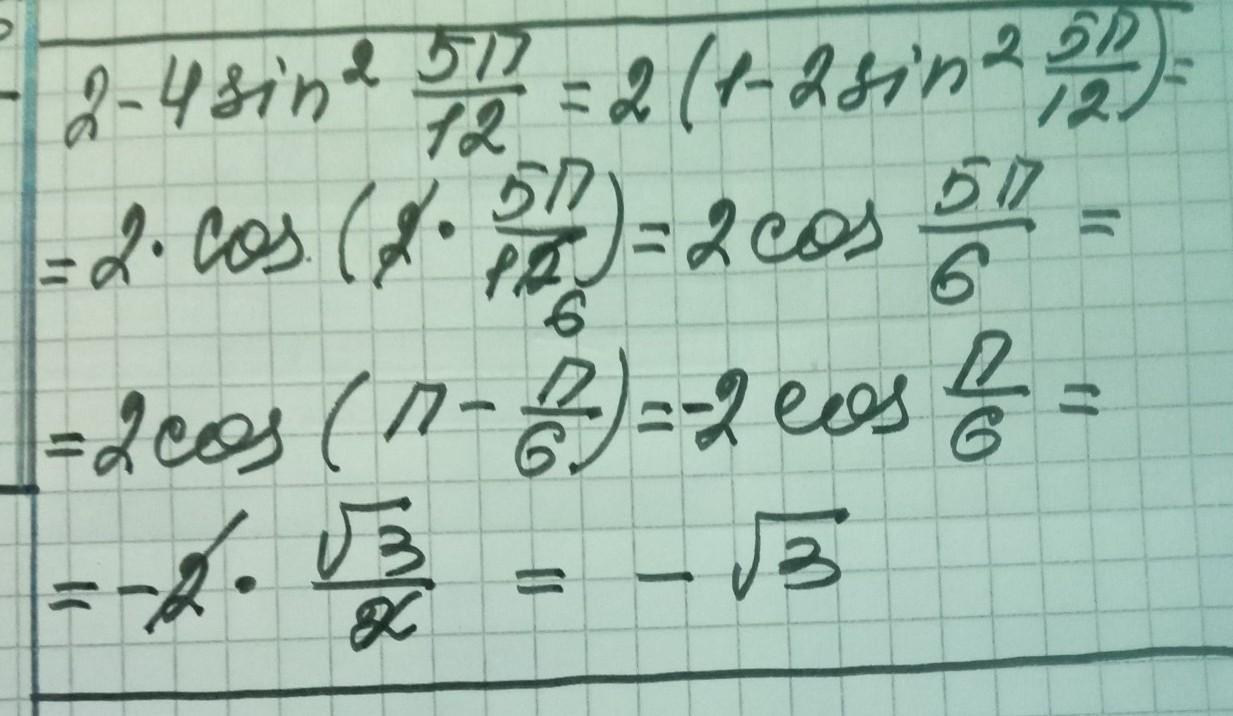 2 - 4 sin² 5π/12 = 2 (1 - 2 sin² 5π/12) =
= 2 · cos (2 · 5π/12 6) = 2 cos 5π/6 =
= 2 cos (π - π/6) = -2 cos π/6 =
= -2 · √3/2 = - √3